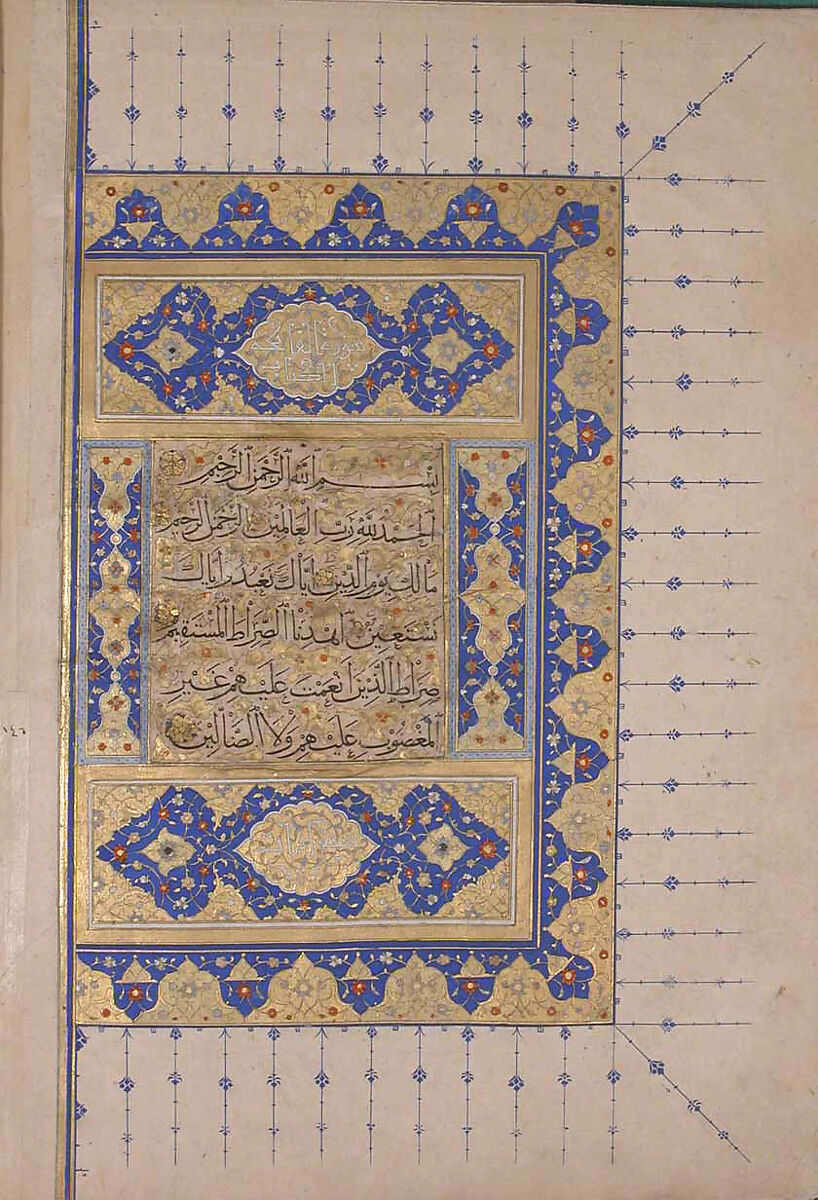 سورة الفاتحة
الكتاب
بِسْمِ اللَّهِ الرَّحْمَٰنِ الرَّحِيمِ
اَلْحَمْدُ لِلَّهِ رَبِّ الْعَالَمِينَ الرَّحْمَٰنِ الرَّحِيمِ
مَالِكِ يَوْمِ الدِّينِ اِيَّاكَ نَعْبُدُ وَاِيَّاكَ
نَسْتَعِينُ اِهْدِنَا الصِّرَاطَ الْمُسْتَقِيمَ
صِرَاطَ الَّذِينَ اَنْعَمْتَ عَلَيْهِمْ غَيْرِ
الْمَغْضُوبِ عَلَيْهِمْ وَلَا الضَّالِّينَ